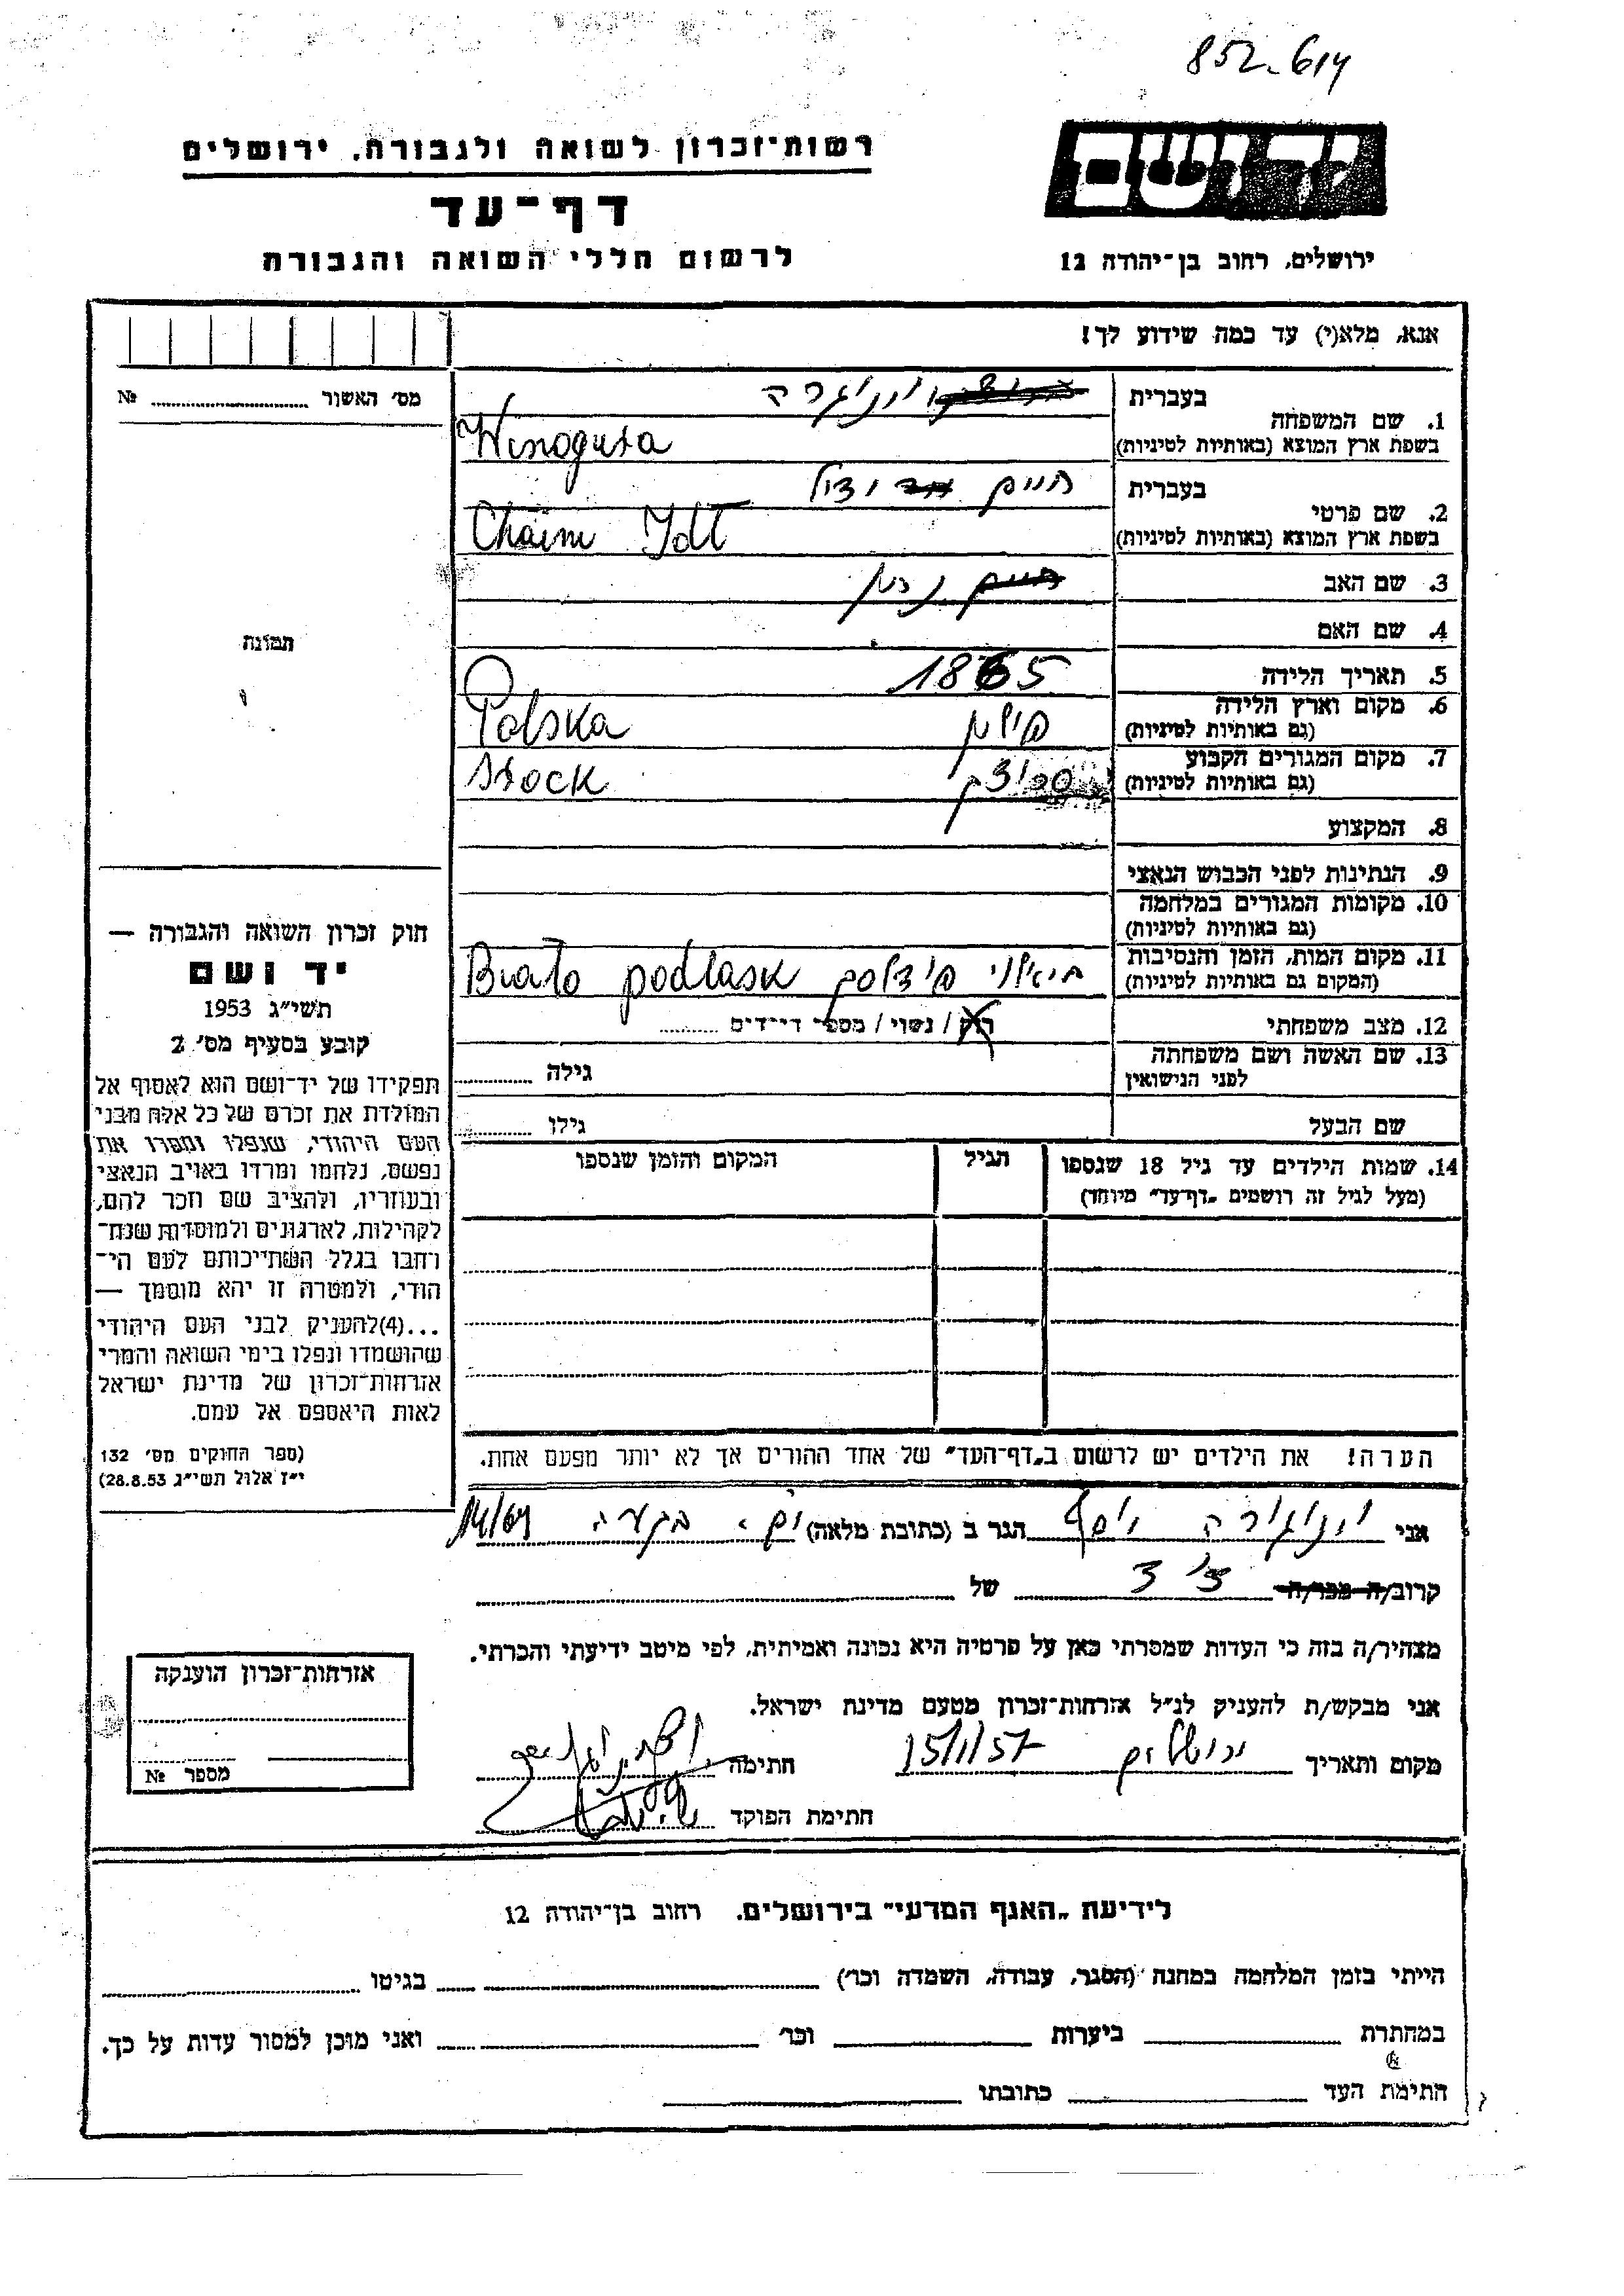 852-614
יד ושם
רשות־זכרון לשואה ולגבורה, ירושלים
דף־עד
לרשום חללי השואה והגבורה
ירושלים, רחוב בן־יהודה 12
אנא, מלא(י) עד כמה שידוע לך!
מס׳ האשור .......... №
תמונה
1. שם המשפחה
בעברית
וינוגורה
בשפת ארץ המוצא (באותיות לטיניות)
Winogura
2. שם פרטי
בעברית
חיים
בשפת ארץ המוצא (באותיות לטיניות)
Chaim
3. שם האב
4. שם האם
5. תאריך הלידה
1865
6. מקום וארץ הלידה
(גם באותיות לטיניות)
פולין
Polska
7. מקום המגורים הקבוע
(גם באותיות לטיניות)
Stock
8. המקצוע
9. הנתינות לפני הכבוש הנאצי
10. מקומות המגורים במלחמה
(גם באותיות לטיניות)
11. מקום המות, הזמן והנסיבות
(המקום גם באותיות לטיניות)
podlask
12. מצב משפחתי
רוק / נשוי / מספר ילדים ........
13. שם האשה ושם משפחתה
לפני הנישואין
גילה ..........
שם הבעל
גילו ..........
14. שמות הילדים עד גיל 18 שנספו
(מעל לגיל זה רושמים „דף־עד״ מיוחד)
הגיל
המקום והזמן שנספו
הערה! את הילדים יש לרשום ב„דף־העד״ של אחד ההורים אך לא יותר מפעם אחת.
חוק זכרון השואה והגבורה —
יד ושם
תשי״ג 1953
קובע בסעיף מס׳ 2
תפקידו של יד־ושם הוא לאסוף אל
המולדת את זכרם של כל אלה מבני
העם היהודי, שנפלו ומסרו את
נפשם, נלחמו ומרדו באויב הנאצי
ובעוזריו, ולהציב שם וזכר להם,
לקהילות, לארגונים ולמוסדות שנח־
רבו בגלל השתייכותם לעם הי־
הודי, ולמטרה זו יהא מוסמך —
...(4)להעניק לבני העם היהודי
שהושמדו ונפלו בימי השואה והמרי
אזרחות־זכרון של מדינת ישראל
לאות היאספם אל עמם.
(ספר החוקים מס׳ 132
י״ז אלול תשי״ג 28.8.53)
אני וינוגורה יוסף הגר ב (כתובת מלאה)
קרוב/ה מכר/ה של
מצהיר/ה בזה כי העדות שמסרתי כאן על פרטיה היא נכונה ואמיתית, לפי מיטב ידיעתי והכרתי.
אני מבקש/ת להעניק לנ״ל אזרחות־זכרון מטעם מדינת ישראל.
מקום ותאריך ירושלים 15/1/57 חתימה
חתימת הפוקד
אזרחות־זכרון הוענקה
מספר №
לידיעת „האגף המדעי״ בירושלים, רחוב בן־יהודה 12
הייתי בזמן המלחמה במחנה (הסגר, עבודה, השמדה וכו׳) בגיטו
במחתרת ביערות וכו׳ ואני מוכן למסור עדות על כך.
חתימת העד כתובתו